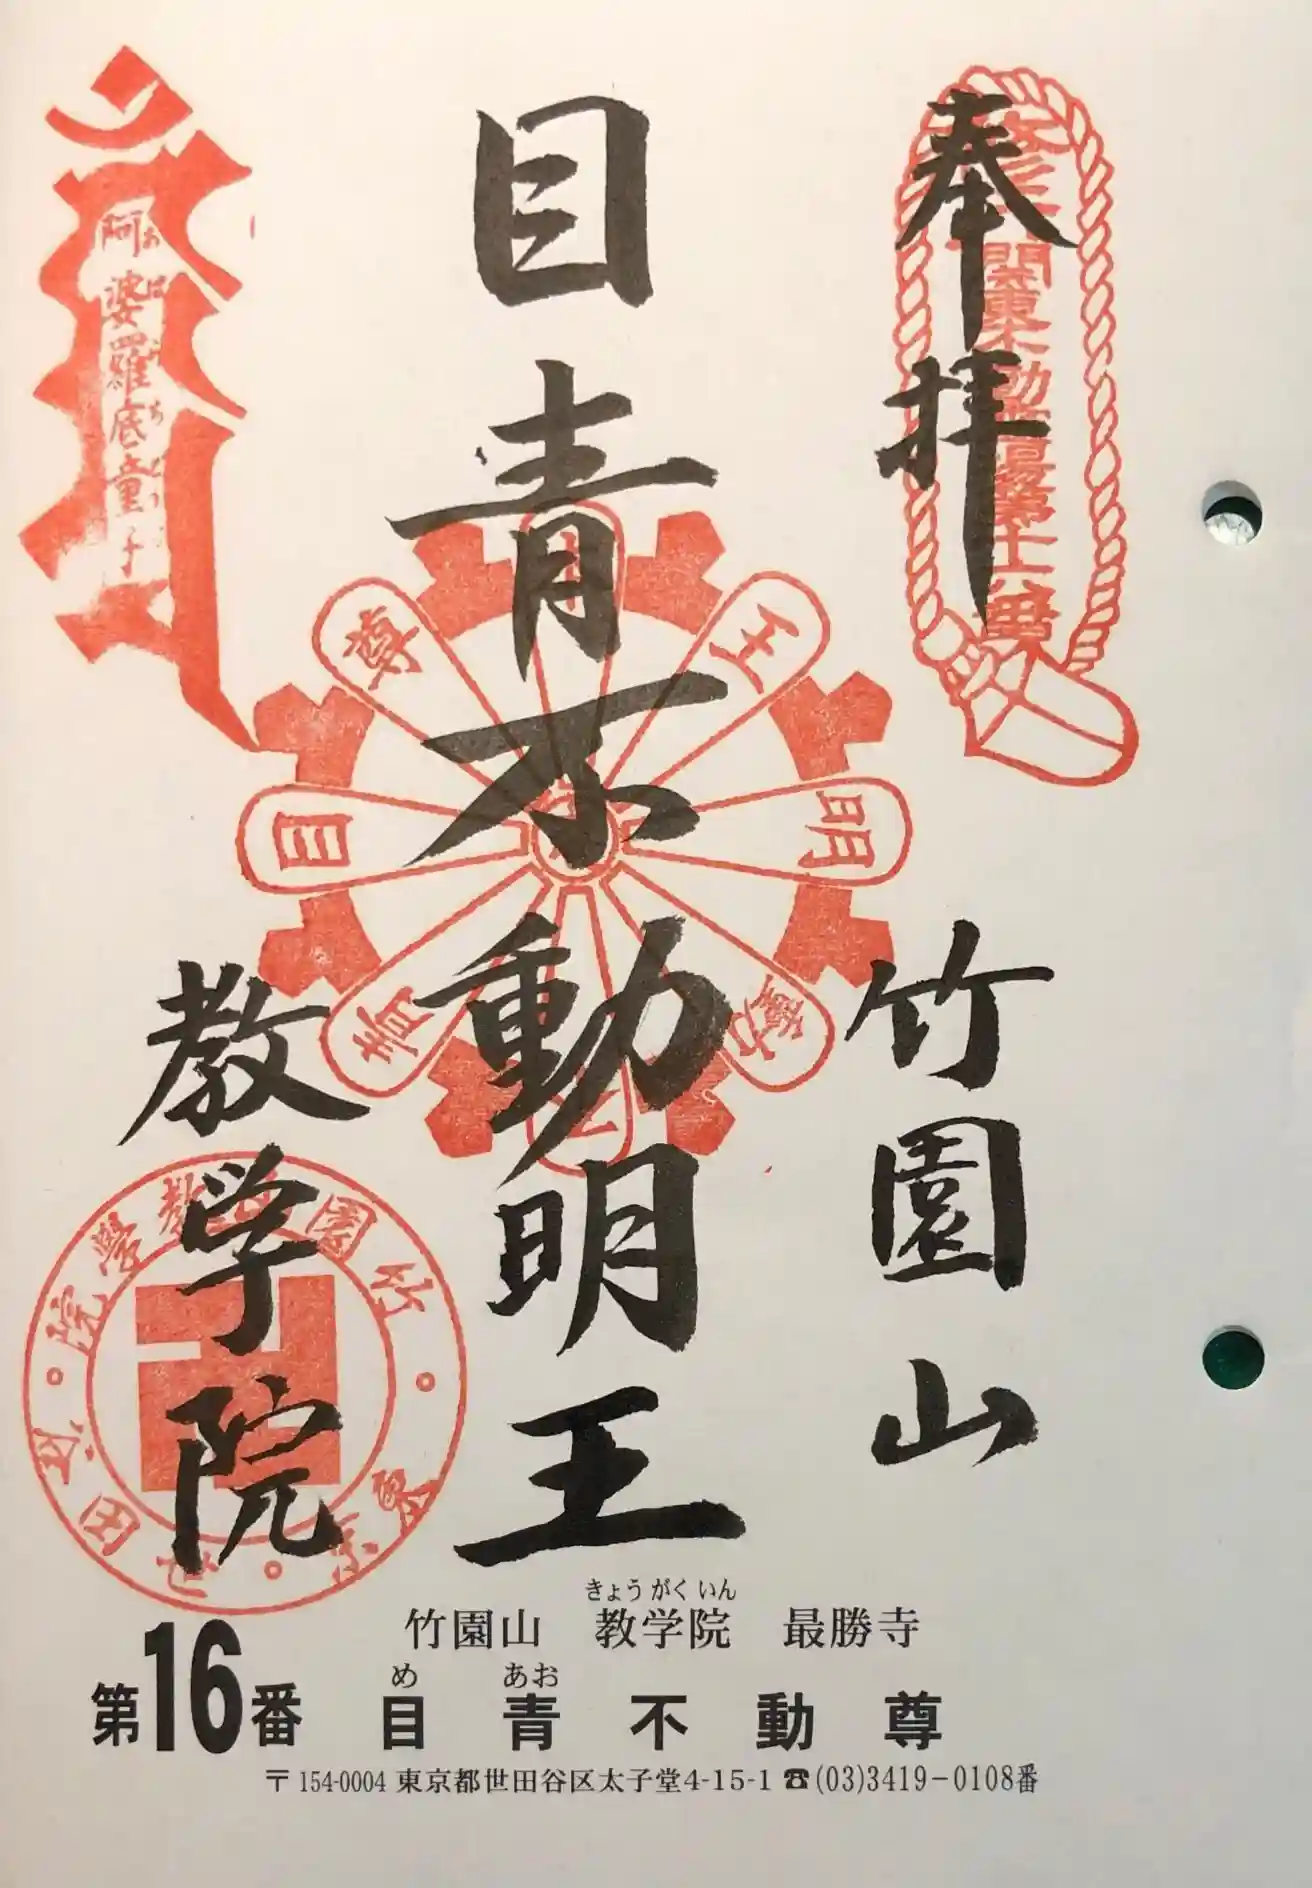 奉拝
関東不動霊場第十六番
竹園山
目青不動明王
教学院
阿婆羅底童子
あ ば ら ち どう じ
目青不動明王尊
竹園山教學院
東京・世田谷区
きょう がく いん
竹園山 教学院 最勝寺
め あお
第16番 目青不動尊
〒154-0004 東京都世田谷区太子堂4-15-1 ☎(03)3419-0108番